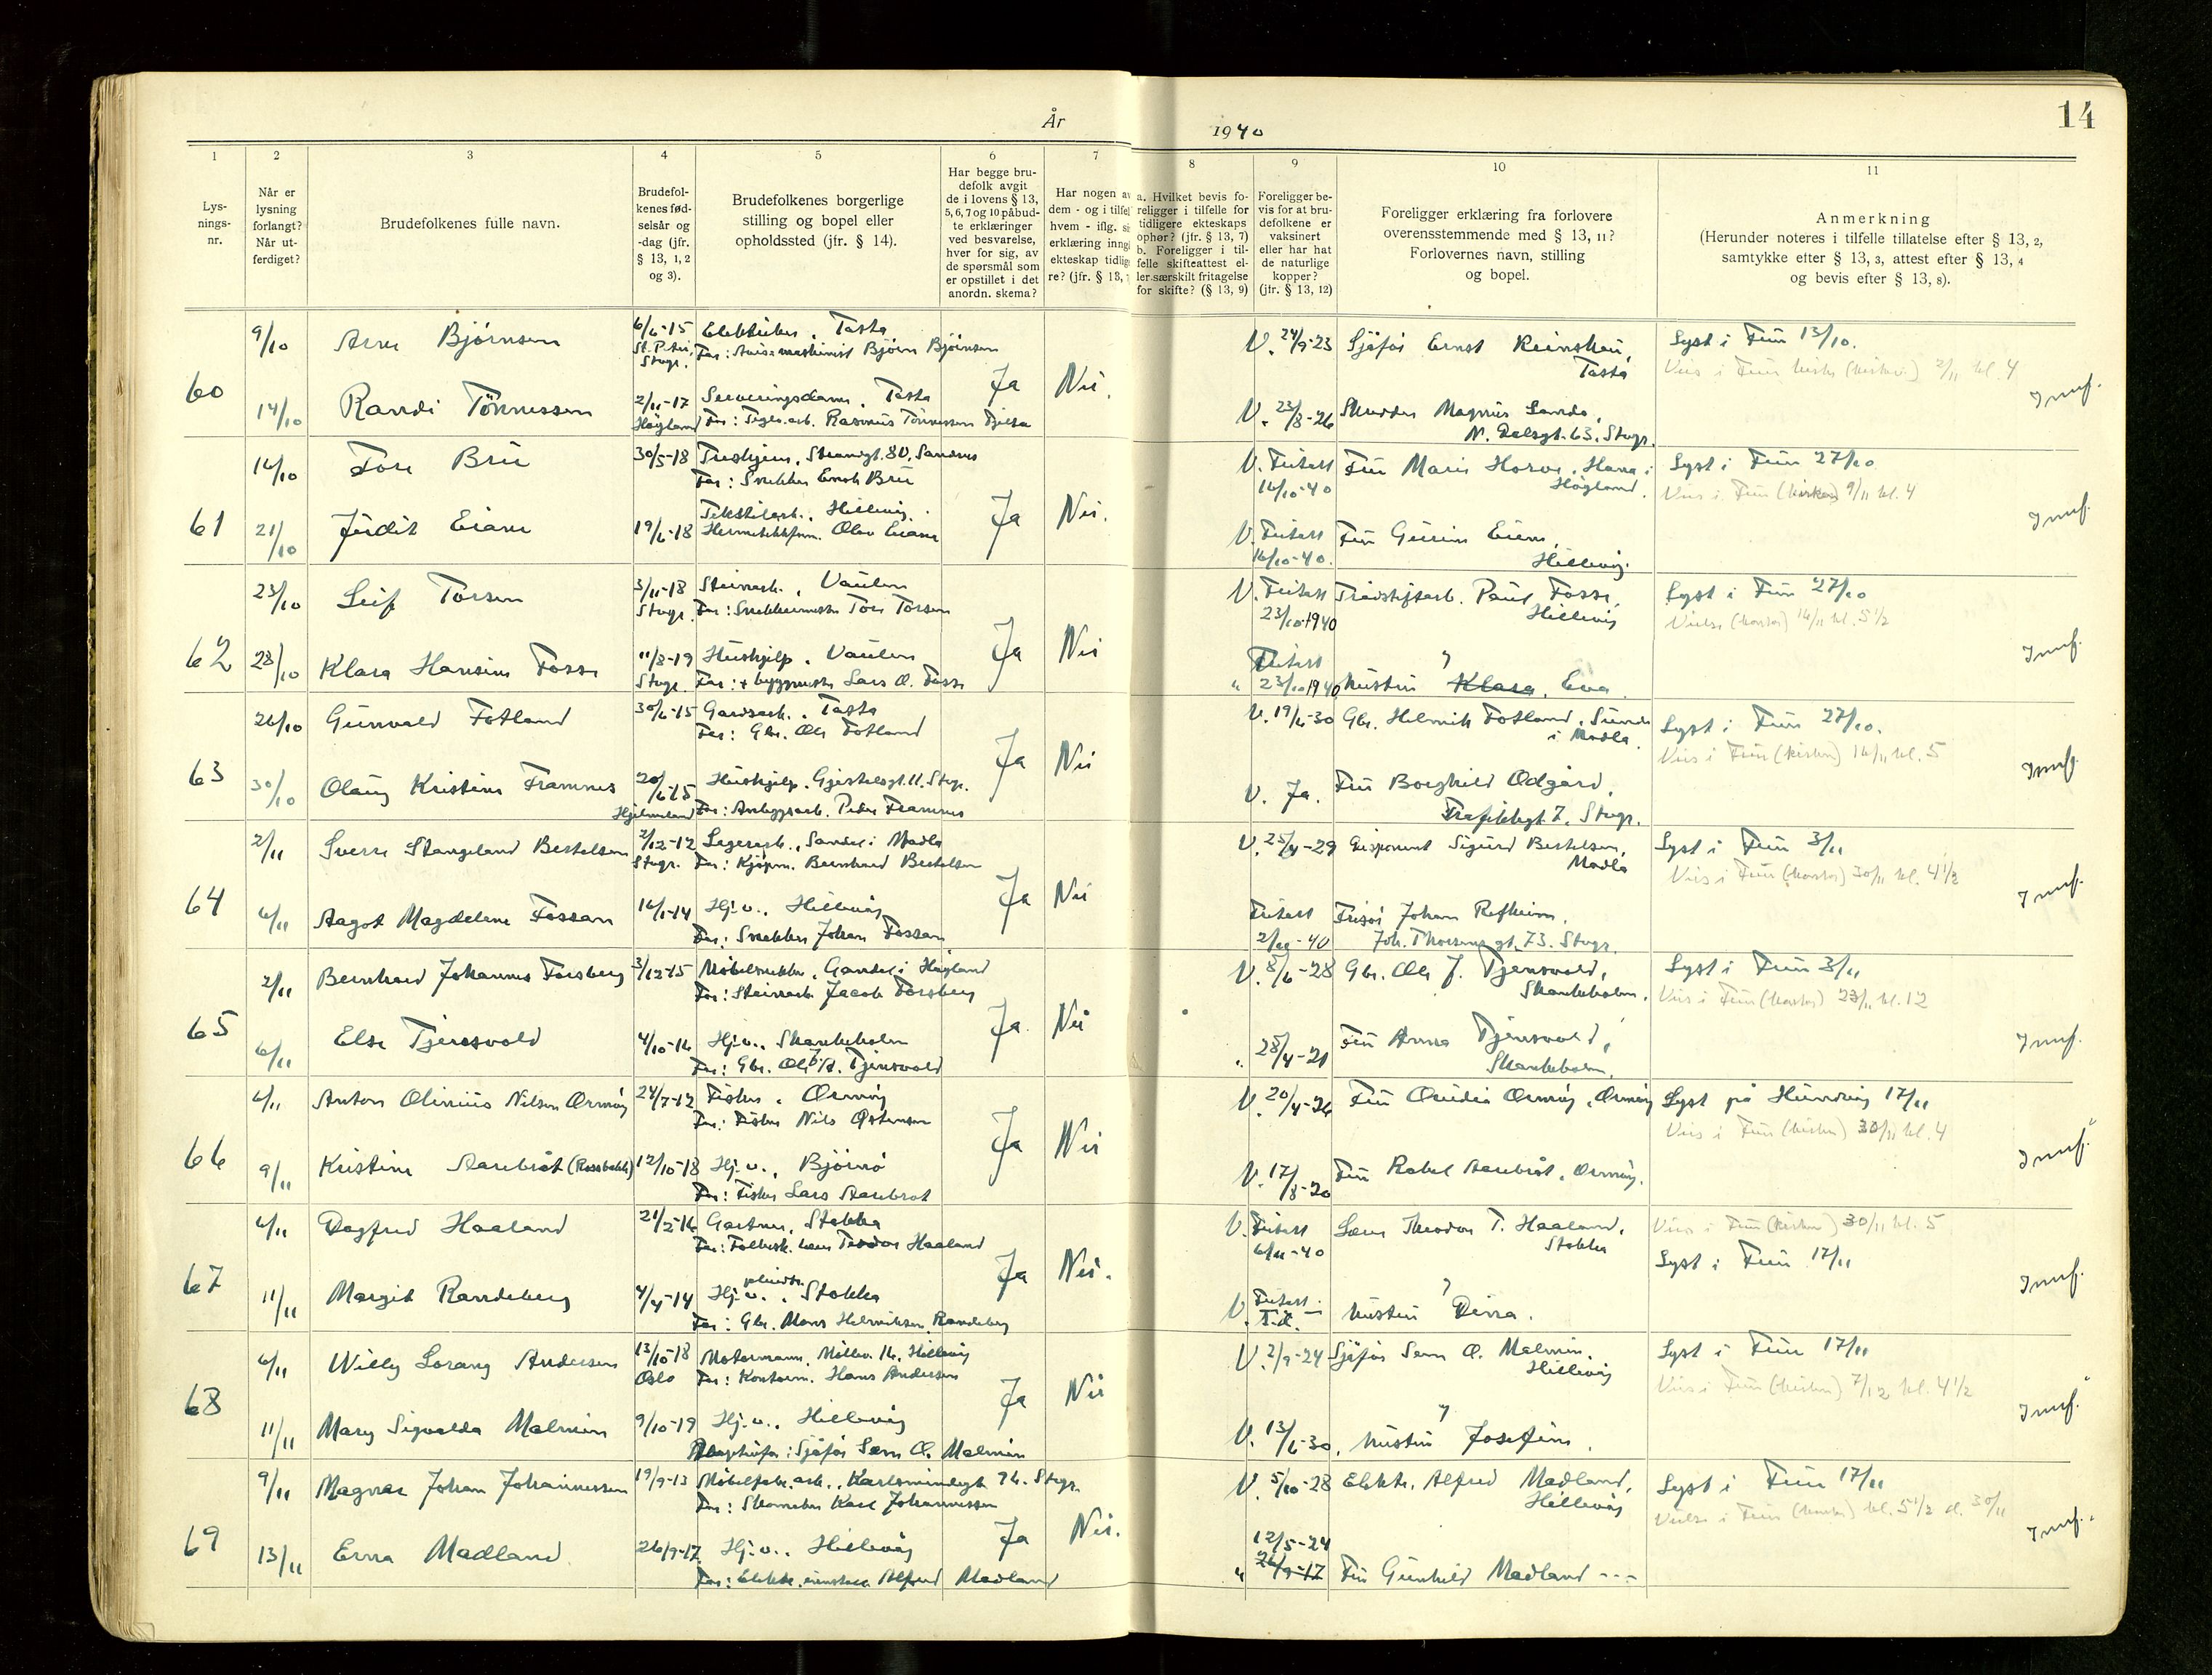 År 1940
14
1 2 3 4 5 6 7 8 9 10 11
Lys-
nings-
nr.
Når er
lysning
forlangt?
Når ut-
ferdiget?
Brudefolkenes fulle navn.
Brudefol-
kenes fød-
selsår og
-dag (jfr.
§ 13, 1, 2
og 3).
Brudefolkenes borgerlige
stilling og bopel eller
opholdssted (jfr. § 14).
Har begge bru-
defolk avgit
de i lovens § 13,
5, 6, 7 og 10 påbud-
te erklæringer
ved besvarelse,
hver for sig, av
de spørsmål som
er opstillet i det
anordn. skema?
Har nogen av
dem - og i tilfel
hvem - iflg. si
erklæring inngå
ekteskap tidlige
re? (jfr. § 13,
a. Hvilket bevis fo-
religger i tilfelle for
tidligere ekteskaps
ophør? (jfr. § 13, 7)
b. Foreligger i til-
felle skifteattest el-
ler særskilt fritagelse
for skifte? (§ 13, 9)
Foreligger be-
vis for at bru-
defolkene er
vaksinert
eller har hat
de naturlige
kopper?
(jfr. § 13, 12)
Foreligger erklæring fra forlovere
overensstemmende med § 13, 11?
Forlovernes navn, stilling
og bopel.
Anmerkning
(Herunder noteres i tilfelle tillatelse efter § 13, 2,
samtykke efter § 13, 3, attest efter § 13, 4
og bevis efter § 13, 8).
60
9/10 Arne Bjørnsen 6/6-15 St. Petri, Stvgr. Elektriker, Tasta
Far: Avismaskinist Bjørn Bjørnsen
V. 24/9-23 Sjåfør Ernst Reinskau,
Tasta
Lyst i Frue 13/10.
Vies i Frue kirke (kirken) 2/11 kl. 4
14/10 Randi Tönnessen 2/11-17 Høgland Serveringsdame, Tasta
Far: Tegl.arb. Rasmus Tönnessen
Ja Nei.
V. 23/8-26 Skredder Magnus Lende,
N. Dalsgt. 63, Stvgr.
61
16/10 Tore Brue 30/5-18 Strandgt. 80, Sandnes
Far: Snekker Enok Brue
V. Friatt. 16/10-40 Fru Marie Horve, Hana i
Høgland.
Lyst i Frue 27/10
Vies i Frue (kirken) 9/11 kl. 4
21/10 Judit Eiane 19/6-18 Tekstilarb., Hillevåg.
Olav Eiane
Ja Nei.
V. Friatt. 16/10-40. Fru Gurine Eiane,
Hillevåg.
62
23/10 Leif Torsen 3/11-18 Stvgr. Steinarb., Vaulen
Far: Snekkermester Tore Torsen
V. Friatt. 23/10-1940 Paul Fosse,
Hillevåg
Lyst i Frue 27/10
Vielse (kontor) 16/11 kl. 5½
28/10 Klara Hansine Fosse 11/8-19 Stvgr. Hushjelp, Vaulen
Far: + byggmester Lars O. Fosse
Ja Nei
" Friatt. 23/10 1940 hustru Klara, Eva.
63
26/10 Gunvald Fotland 30/6-15 Gardsarb., Tasta
Far: Gbr. Ole Fotland
V. 19/6-30 Gbr. Helmik Fotland, Sunde
i Madla.
Lyst i Frue 27/10.
Vies i Frue (kirken) 16/11 kl. 5
30/10 Olaug Kristine Framnes 20/6-15 Hjelmeland Hushjelp, Gjesdalsgt. 11, Stvgr.
Far: Anleggsarb. Peder Framnes
Ja Nei
V. Ja. Fru Borghild Ødgård,
Trafikkgt. 7, Stvgr.
64
2/11 Sverre Stangeland Bertelsen 2/12-12 Stvgr. Lagerarb., Sande i Madla
Far: Kjøpm. Bernhard Bertelsen
V. 25/4-29 Disponent Sigurd Bertelsen,
Madla
Lyst i Frue 3/11
Vies i Frue (kontor) 30/11 kl. 4½
6/11 Aagot Magdalene Fossan 16/1-14 Hj.v., Hillevåg
Far: Snekker Johan Fossan
Ja Nei
Friatt. 2/11-40 Frisør Johan Refheim,
Joh. Thorsens gt. 73. Stvgr.
65
2/11 Bernhard Johannes Forsberg 3/12-15 Møbelsnekker, Gandal i Høgland
Far: Steinarb. Jacob Forsberg
V. 8/6-28 Gbr. Ole J. Tjensvold,
Skadeholm.
Lyst i Frue 3/11
Vies i Frue (kontor) 23/11 kl. 12
6/11 Else Tjensvold 4/10-16 Hj.v.,
Far: Gbr. Ole J. Tjensvold
Ja. Nei
28/4-21 Fru Anna Tjensvold,
66
6/11 Anton Olinius Nilsen Ormøy 24/7-12 Fisker, Ormøy
Far: Fisker Nils Østensen
V. 20/4-26 Fru Ovidia Ormøy, Ormøy
Lyst på Hundvåg 17/11
Vies i Frue (kirken) 30/11 kl. 4
9/11 Kristine Aarebrot (Rossbakk) 12/10-18 Hj.v., Bjørnø
Far: Fisker Lars Aarebrot
Ja Nei
V. 17/8-20 Fru Rakel Aarebrot, Ormøy.
67
6/11 Dagfred Haaland 21/2-16 Gartner, Stokka
Far: Teodor Haaland
V. Friatt. 6/11-40 Theodor T. Haaland,
Stokka
Vies i Frue (kirken) 30/11 kl. 5
Lyst i Frue 17/11
11/11 Margit Randeberg 4/4-14 Hj.v., Stokka
Far: Gbr. Mons Helmiksen Randeberg
Ja Nei.
V. Friatt. s.d. hustru Dina.
68
6/11 Willy Lorang Andersen 13/10-18 Oslo Motormann, Møllev. 16, Hillevåg
Far: Kontorm. Hans Andersen
V. 2/9-24 Sjåfør Sem O. Malmin,
Hillevåg
Lyst i Frue 17/11
Vies i Frue (kirken) 7/12 kl. 4½
11/11 Mary Sigvalda Malmin 9/10-19 Hj.v., Hillevåg
Sjåfør Sem O. Malmin
Ja Nei
V. 13/6-30, hustru Josefine.
69
9/11 Magnar Johan Johannessen 19/9-13 Møbelfabr.arb., Karlsminnegt. 76. Stvgr.
Far: Skomaker Karl Johannessen
V. 5/10-28 Elektr. Alfred Madland,
Hillevåg
Lyst i Frue 17/11
Vielse i Frue (kontor) kl. 5½ d. 30/11
13/11 Erna Madland 26/9-17 Hj.v., Hillevåg
Far: Elektr. Alfred Madland
Ja Nei.
12/5-24
" 26/9-17 Fru Gunhild Madland ---